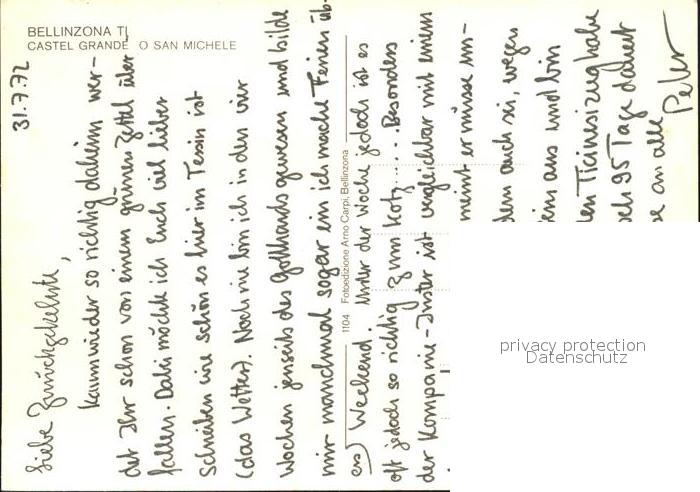 BELLINZONA TI
CASTEL GRANDE O SAN MICHELE
1104 Fotoedizione Arno Carpi, Bellinzona
31.7.72
Liebe Zurückgekehrte,
Kaum wieder so richtig daheim wer-
det Ihr schon von einem grünen Zettel über
fallen. Dabei möchte ich Euch viel lieber
schreiben wie schön es hier im Tessin ist
(das Wetter). Noch nie bin ich in den vier
Wochen jenseits des Gotthards gewesen und bilde
mir manchmal sogar ein ich mache Ferien üb-
ers) Weekend. Unter der Woche jedoch ist es
oft jedoch so richtig zum Kotz..... Besonders
der Kompanie- ist vergleichbar mit einem
meint er müsse im-
dem auch sei, wegen
aus und bin
den Ticinesizug habe
95 Tage dauert
an alle
Peter
privacy protection
Datenschutz